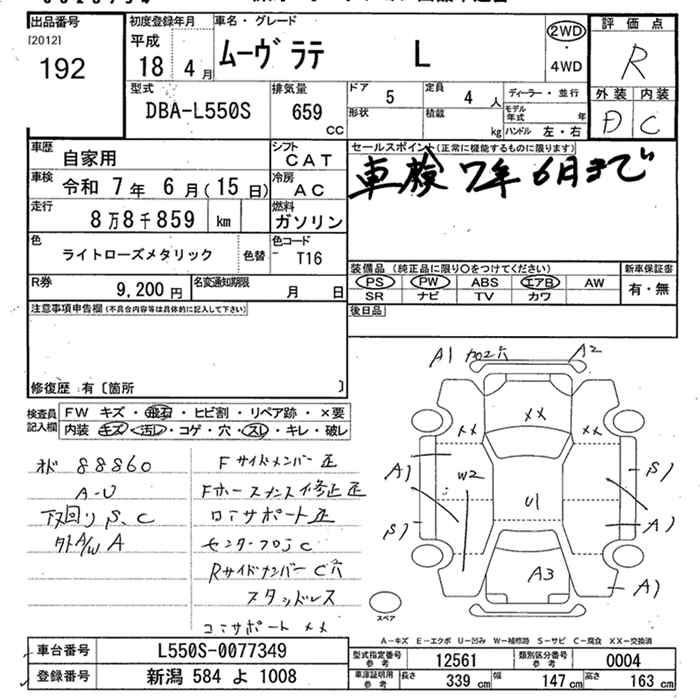 出品番号 初度登録年月 車名・グレード 評価点
[2012] 平成 ムーヴラテ L 2WD R
192 18 4月 ・4WD
型式 排気量 ドア 5 定員 4人 ディーラー・並行 外装 内装
DBA-L550S 659 CC 形状 積載 kg モデル年式 年 D C
ハンドル 左・右
車歴 自家用 シフト CAT セールスポイント(正常に機能するものに限ります)
車検 令和 7年 6月(15日) 冷房 AC 車検 7年 6月まで
走行 8万8千859 km 燃料 ガソリン
色 ライトローズメタリック 色替 色コード T16
装備品(純正品に限り○をつけてください) 新車保証書
R券 9,200円 名変通知期限 月 日 PS PW ABS エアB AW 有・無
SR ナビ TV カワ
注意事項申告欄(不具合内容等は具体的に記入して下さい) 後日品
修復歴 有〔箇所 〕
検査員記入欄 FW キズ・飛石・ヒビ割・リペア跡・×要
内装 キズ・汚レ・コゲ・穴・スレ・キレ・破レ
88860 Fサイドメンバー 正
A-U
下回り S、C コアサポート正
A/W A センターフロアC
Rサイドメンバー C穴
スタッドレス
コアサポート ××
A1 A2
××
×× ××
A) W2 S)
U1
S) A)
A3 A)
スペア
A-キズ E-エクボ U-凹み W-補修跡 S-サビ C-腐食 XX-交換済
車台番号 L550S-0077349 型式指定番号参考 12561 類別区分番号参考 0004
登録番号 新潟 584 よ 1008 車庫証明用参考 長さ 339 cm 幅 147 cm 高さ 163 cm